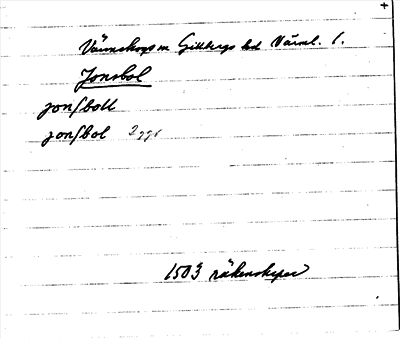 +
Värmskogs sn Gillbergs hd Värml. l.
Jonsbol
jonsboll
jonsbol 2 ggr
1503 räkenskaper